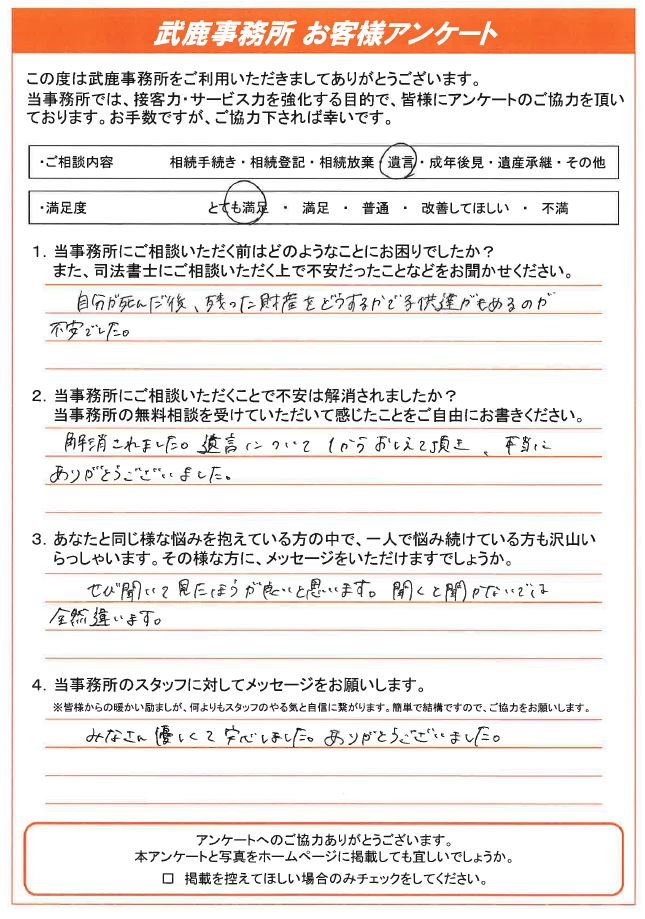 武鹿事務所 お客様アンケート
この度は武鹿事務所をご利用いただきましてありがとうございます。
当事務所では、接客力・サービス力を強化する目的で、皆様にアンケートのご協力を頂い
ております。お手数ですが、ご協力下されば幸いです。
・ご相談内容 相続手続き・相続登記・相続放棄・遺言・成年後見・遺産承継・その他
・満足度 とても満足 ・ 満足 ・ 普通 ・ 改善してほしい ・ 不満
1. 当事務所にご相談いただく前はどのようなことにお困りでしたか？
また、司法書士にご相談いただく上で不安だったことなどをお聞かせください。
自分が死んだ後、残った財産をどうするかで子供達がもめるのが
不安でした。
2. 当事務所にご相談いただくことで不安は解消されましたか？
当事務所の無料相談を受けていただいて感じたことをご自由にお書きください。
解消されました。遺言について1からおしえて頂き、本当に
ありがとうございました。
3. あなたと同じ様な悩みを抱えている方の中で、一人で悩み続けている方も沢山い
らっしゃいます。その様な方に、メッセージをいただけますでしょうか。
ぜひ聞いて見たほうが良いと思います。聞くと聞かないでは
全然違います。
4. 当事務所のスタッフに対してメッセージをお願いします。
※皆様からの暖かい励ましが、何よりもスタッフのやる気と自信に繋がります。簡単で結構ですので、ご協力をお願いします。
みなさん優しくて安心しました。ありがとうございました。
アンケートへのご協力ありがとうございます。
本アンケートと写真をホームページに掲載しても宜しいでしょうか。
□ 掲載を控えてほしい場合のみチェックをしてください。